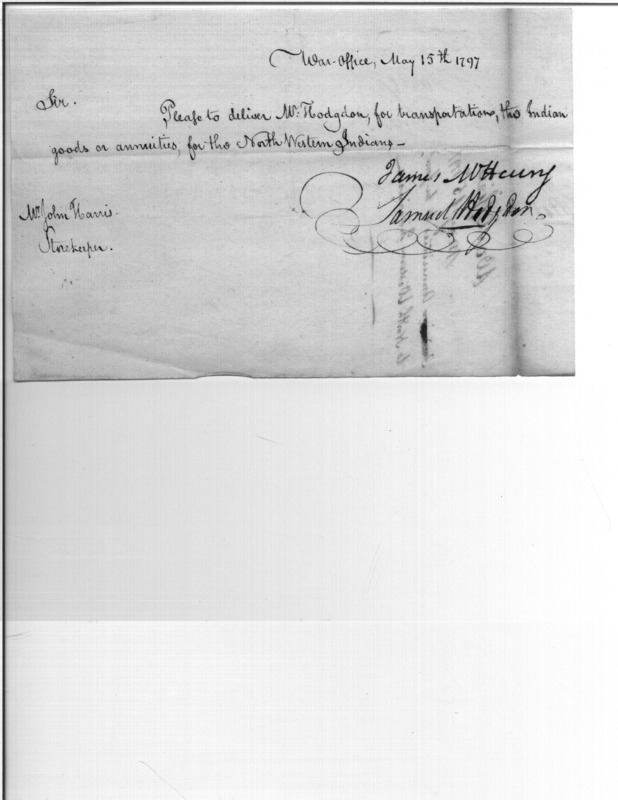 War-Office, May 15th 1797
Sir.
Please to deliver Mr. Hodgdon, for transportation, the Indian
goods or annuities, for the North Western Indians—
James McHenry
Samuel Hodgdon.
Mr. John Harris.
Storekeeper.